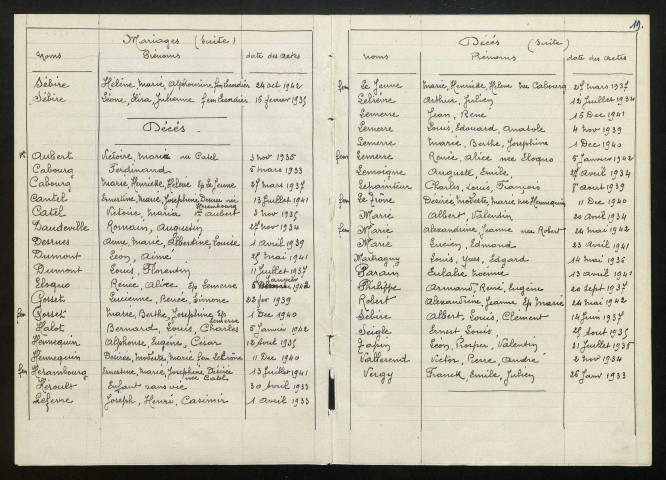 Mariages (Suite)
Noms Prénoms date des actes
Sébire Hélène, Marie, Alphonsine fem Leordier 24 oct 1942
Sébire Léone, Kira, Julienne fem Leordier 16 fevrier 1935
Décés
Aubert Victoire, Maria née Catel 3 nov 1935
Cabourg Ferdinand 5 mars 1933
Cabourg Marie, Henriette, Hélène Ep Le Jeune 27 mars 1937
Cantel Ernestine, Marie, Josephine, Désirée née Herambourg 13 Juillet 1941
Catel Victoire, Maria Ep Aubert 3 nov 1935
Daudeville Romain, Augustin 27 nov 1934
Desrues Anne, Marie, Albertine, Louise 1 avril 1939
Dumont Léon, Aimé 28 mai 1941
Dumont Louis, Florentin 11 Juillet 1937
Janvier
Eloquo Renée, Alice Ep Lemerre 5 1942
Gosset Lucienne, Renée, Simone 23 fev 1939
fem Gosset Marie, Berthe, Josephine Ep Lemerre 1 Dec 1940
Halot Bernard, Louis, Charles 5 janvier 1942
Hennequin Alphonse, Eugène, César 12 Aout 1935
Hennequin Désirée, Modeste, Marie fem Le Trône 11 Dec 1940
fem Herambourg Ernestine, Marie, Josephine, Désirée 13 Juillet 1941
Héroult Enfant sans vie 30 avril 1933
Lefevre Joseph, Henri, Casimir 1 avril 1933
19.
Décés (Suite)
Noms Prénoms date des actes
fem Le Jeune Marie, Henriette, Hélène née Cabourg 27 mars 1937
Lefèvre Arthur, Julien 18 Juillet 1934
Lemerre Jean, René 15 Dec 1941
Lemerre Louis, Edouard, Anatole 4 nov 1939
Lemerre Marie, Berthe, Josephine 1 Dec 1940
fem Lemerre Renée, Alice née Eloquo 5 janvier 1942
Lemoigne Auguste, Emile 27 avril 1934
Lepainteur Charles, Louis, François 7 aout 1939
fem Le Trône Désirée, Modeste, Marie née Hennequin 11 Dec 1940
Marie Albert, Valentin 20 avril 1934
fem Marie Alexandrine, Jeanne née Robert 24 mai 1942
Marie Lucien, Edmond 23 avril 1941
Martragny Louis, Yves, Edgard 14 mai 1936
Parain Eulalie, Noémie 13 avril 1941
Philippe Armand, René, Eugène 20 Sept 1937
Robert Alexandrine, Jeanne Ep Marie 24 mai 1942
Sébire Albert, Louis, Clément 14 Juin 1937
Seigle Ernest, Louis 25 Aout 1935
Tapin Léon, Prosper, Valentin 21 Juillet 1935
Vallerend Victor, Pierre, André 2 nov 1934
Vergy Franck, Emile, Julien 26 Janv 1933